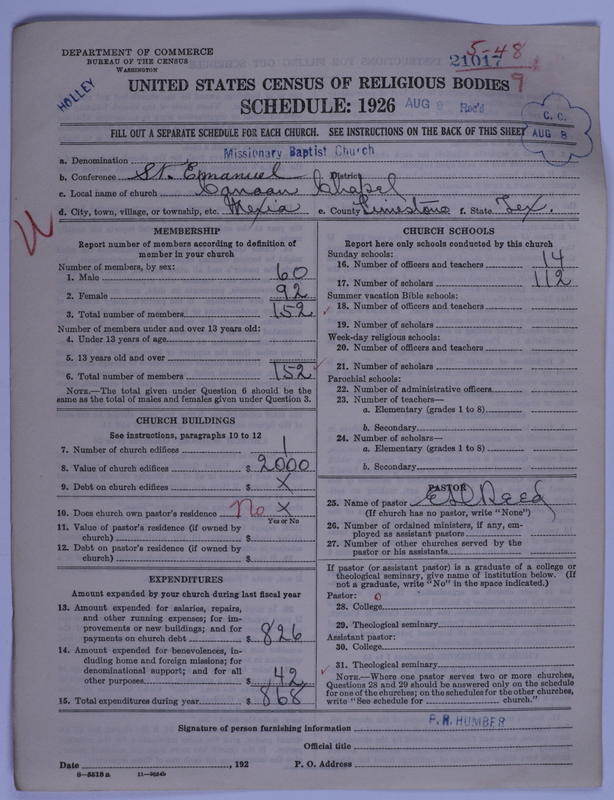 DEPARTMENT OF COMMERCE
BUREAU OF THE CENSUS
WASHINGTON
HOLLEY
5-48
21017
9
UNITED STATES CENSUS OF RELIGIOUS BODIES
SCHEDULE: 1926
AUG 8 Rec'd
C. C.
AUG 8
FILL OUT A SEPARATE SCHEDULE FOR EACH CHURCH. SEE INSTRUCTIONS ON THE BACK OF THIS SHEET
a. Denomination Missionary Baptist Church
b. Conference St. Emanuel District
c. Local name of church Canaan Chapel
d. City, town, village, or township, etc. Mexia e. County Limestone f. State Tex.
MEMBERSHIP
Report number of members according to definition of
member in your church
Number of members, by sex:
1. Male 60
2. Female 92
3. Total number of members 152
Number of members under and over 13 years old:
4. Under 13 years of age
5. 13 years old and over
6. Total number of members 152
NOTE.—The total given under Question 6 should be the
same as the total of males and females given under Question 3.
CHURCH BUILDINGS
See instructions, paragraphs 10 to 12
7. Number of church edifices 1
8. Value of church edifices $ 2000
9. Debt on church edifices $ X
10. Does church own pastor's residence No X
Yes or No
11. Value of pastor's residence (if owned by
church) $
12. Debt on pastor's residence (if owned by
church) $
EXPENDITURES
Amount expended by your church during last fiscal year
13. Amount expended for salaries, repairs,
and other running expenses; for im-
provements or new buildings; and for
payments on church debt $ 826
14. Amount expended for benevolences, in-
cluding home and foreign missions; for
denominational support; and for all
other purposes $ 42
15. Total expenditures during year $ 868
CHURCH SCHOOLS
Report here only schools conducted by this church
Sunday schools:
16. Number of officers and teachers 14
17. Number of scholars 112
Summer vacation Bible schools:
18. Number of officers and teachers
19. Number of scholars
Week-day religious schools:
20. Number of officers and teachers
21. Number of scholars
Parochial schools:
22. Number of administrative officers
23. Number of teachers—
a. Elementary (grades 1 to 8)
b. Secondary
24. Number of scholars—
a. Elementary (grades 1 to 8)
b. Secondary
PASTOR
25. Name of pastor Reed
(If church has no pastor, write "None")
26. Number of ordained ministers, if any, em-
ployed as assistant pastors
27. Number of other churches served by the
pastor or his assistants
If pastor (or assistant pastor) is a graduate of a college or
theological seminary, give name of institution below. (If
not a graduate, write "No" in the space indicated.)
Pastor:
28. College
29. Theological seminary
Assistant pastor:
30. College
31. Theological seminary
NOTE.—Where one pastor serves two or more churches,
Questions 28 and 29 should be answered only on the schedule
for one of the churches; on the schedules for the other churches,
write "See schedule for church."
Signature of person furnishing information P. R. HUMBER
Official title
Date , 192 P. O. Address
8-5518a 11-9924b